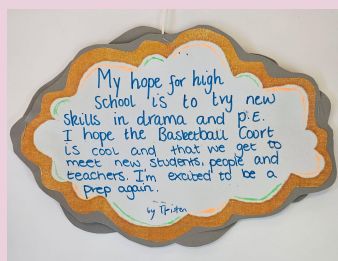 My hope for high
school is to try new
skills in drama and p.E.
I hope the Basketball Coort
is cool and that we get to
meet new students, people and
teachers. I'm excited to be a
prep again.
by Tristen